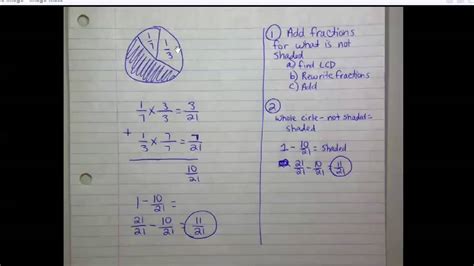 1/7 1/3
1/7 × 3/3 = 3/21
+ 1/3 × 7/7 = 7/21
10/21
1 - 10/21 =
21/21 - 10/21 = 11/21
1 Add fractions
for what is not
shaded
a) find LCD
b) Rewrite fractions
c) Add
2
Whole cirle - not shaded =
shaded
1 - 10/21 = shaded
21/21 - 10/21 = 11/21